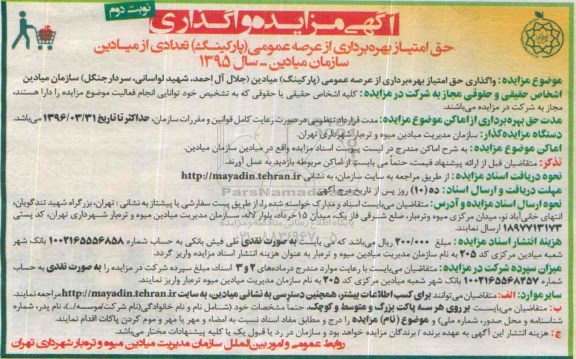 آگهی مزایده و واگذاری
نوبت دوم
حق امتیاز بهره‌برداری از عرصه عمومی (پارکینگ) تعدادی از میادین
سازمان میادین - سال ۱۳۹۵
موضوع مزایده: واگذاری حق امتیاز بهره‌برداری از عرصه عمومی (پارکینگ) میادین (جلال آل احمد، شهید لواسانی، سردار جنگل) سازمان میادین
اشخاص حقیقی و حقوقی مجاز به شرکت در مزایده: کلیه اشخاص حقیقی یا حقوقی که به تشخیص خود توانایی انجام فعالیت موضوع مزایده را دارا هستند،
مجاز به شرکت در مزایده می‌باشند.
مدت حق بهره‌برداری از اماکن موضوع مزایده: مدت قرارداد تنظیمی در صورت رعایت کامل قوانین و مقررات سازمان، حداکثر تا تاریخ ۱۳۹۶/۰۳/۳۱ می‌باشد.
دستگاه مزایده‌گذار: سازمان مدیریت میادین میوه و تره‌بار شهرداری تهران.
اماکن موضوع مزایده: به شرح اماکن مندرج در لیست پیوست اسناد مزایده واقع در میادین سازمان میادین.
تذکر: متقاضیان قبل از ارائه پیشنهاد قیمت، حتماً می بایست از اماکن مربوطه بازدید به عمل آورند.
نحوه دریافت اسناد مزایده: از طریق مراجعه به سایت سازمان، به نشانی http://mayadin.tehran.ir
مهلت دریافت و ارسال اسناد: ده (۱۰) روز پس از تاریخ درج آگهی
نحوه ارسال اسناد مزایده و آدرس: متقاضیان می‌بایست اسناد و مدارک خواسته شده را، از طریق پست سفارشی یا پیشتاز به نشانی: تهران، بزرگراه شهید تندگویان،
انتهای خانی‌آباد نو، میدان مرکزی میوه و تره‌بار، ضلع شرقی فاز یک، میدان ۱۵ خرداد، بلوار لاله، سازمان مدیریت میادین میوه و تره‌بار شهرداری تهران، کد پستی
۱۸۹۷۷۱۳۱۷۳ ارسال نمایند.
هزینه انتشار اسناد مزایده: مبلغ ۲۰۰/۰۰۰ ریال می‌باشد که می بایست به صورت نقدی طی فیش بانکی به حساب شماره ۱۰۰۲۱۶۵۵۵۶۸۵۸ بانک شهر
شعبه میادین مرکزی کد ۲۰۵ به نام سازمان مدیریت میادین میوه و تره‌بار به عنوان هزینه انتشار اسناد مزایده واریز گردد.
میزان سپرده شرکت در مزایده: متقاضیان می‌بایست با رعایت موارد مندرج در ماده‌های ۲ و ۳ اسناد، مبلغ سپرده شرکت در مزایده را به صورت نقدی به حساب
۱۰۰۲۱۶۵۵۶۸۳۵۷ بانک شهر شعبه میادین مرکزی کد ۲۰۵ به نام سازمان مدیریت میادین میوه تره‌بار واریز نمایند.
سایر موارد: الف: متقاضیان می‌توانند برای کسب اطلاعات بیشتر، همچنین دسترسی به نشانی میادین، به سایت http://mayadin.tehran.ir مراجعه نمایند.
ب: متقاضیان می‌بایست بر روی هر سه پاکت بزرگ و متوسط و کوچک، حتما مشخصات خود (شامل نام و نام خانوادگی (نام شرکت/موسسه/...)، نام پدر، شماره
شناسنامه و محل صدور، شماره ملی) و موضوع (نام) مزایده را درج و مطابق مفاد اسناد نسبت به امضاء و مهر یا مهر و موم کردن پاکات اقدام نمایند.
ج: هزینه انتشار این آگهی به عهده برنده / برندگان مزایده خواهد بود و سازمان در رد یا قبول یک یا کلیه پیشنهادات مختار می‌باشد.
روابط عمومی و امور بین‌الملل سازمان مدیریت میادین میوه و تره‌بار شهرداری تهران